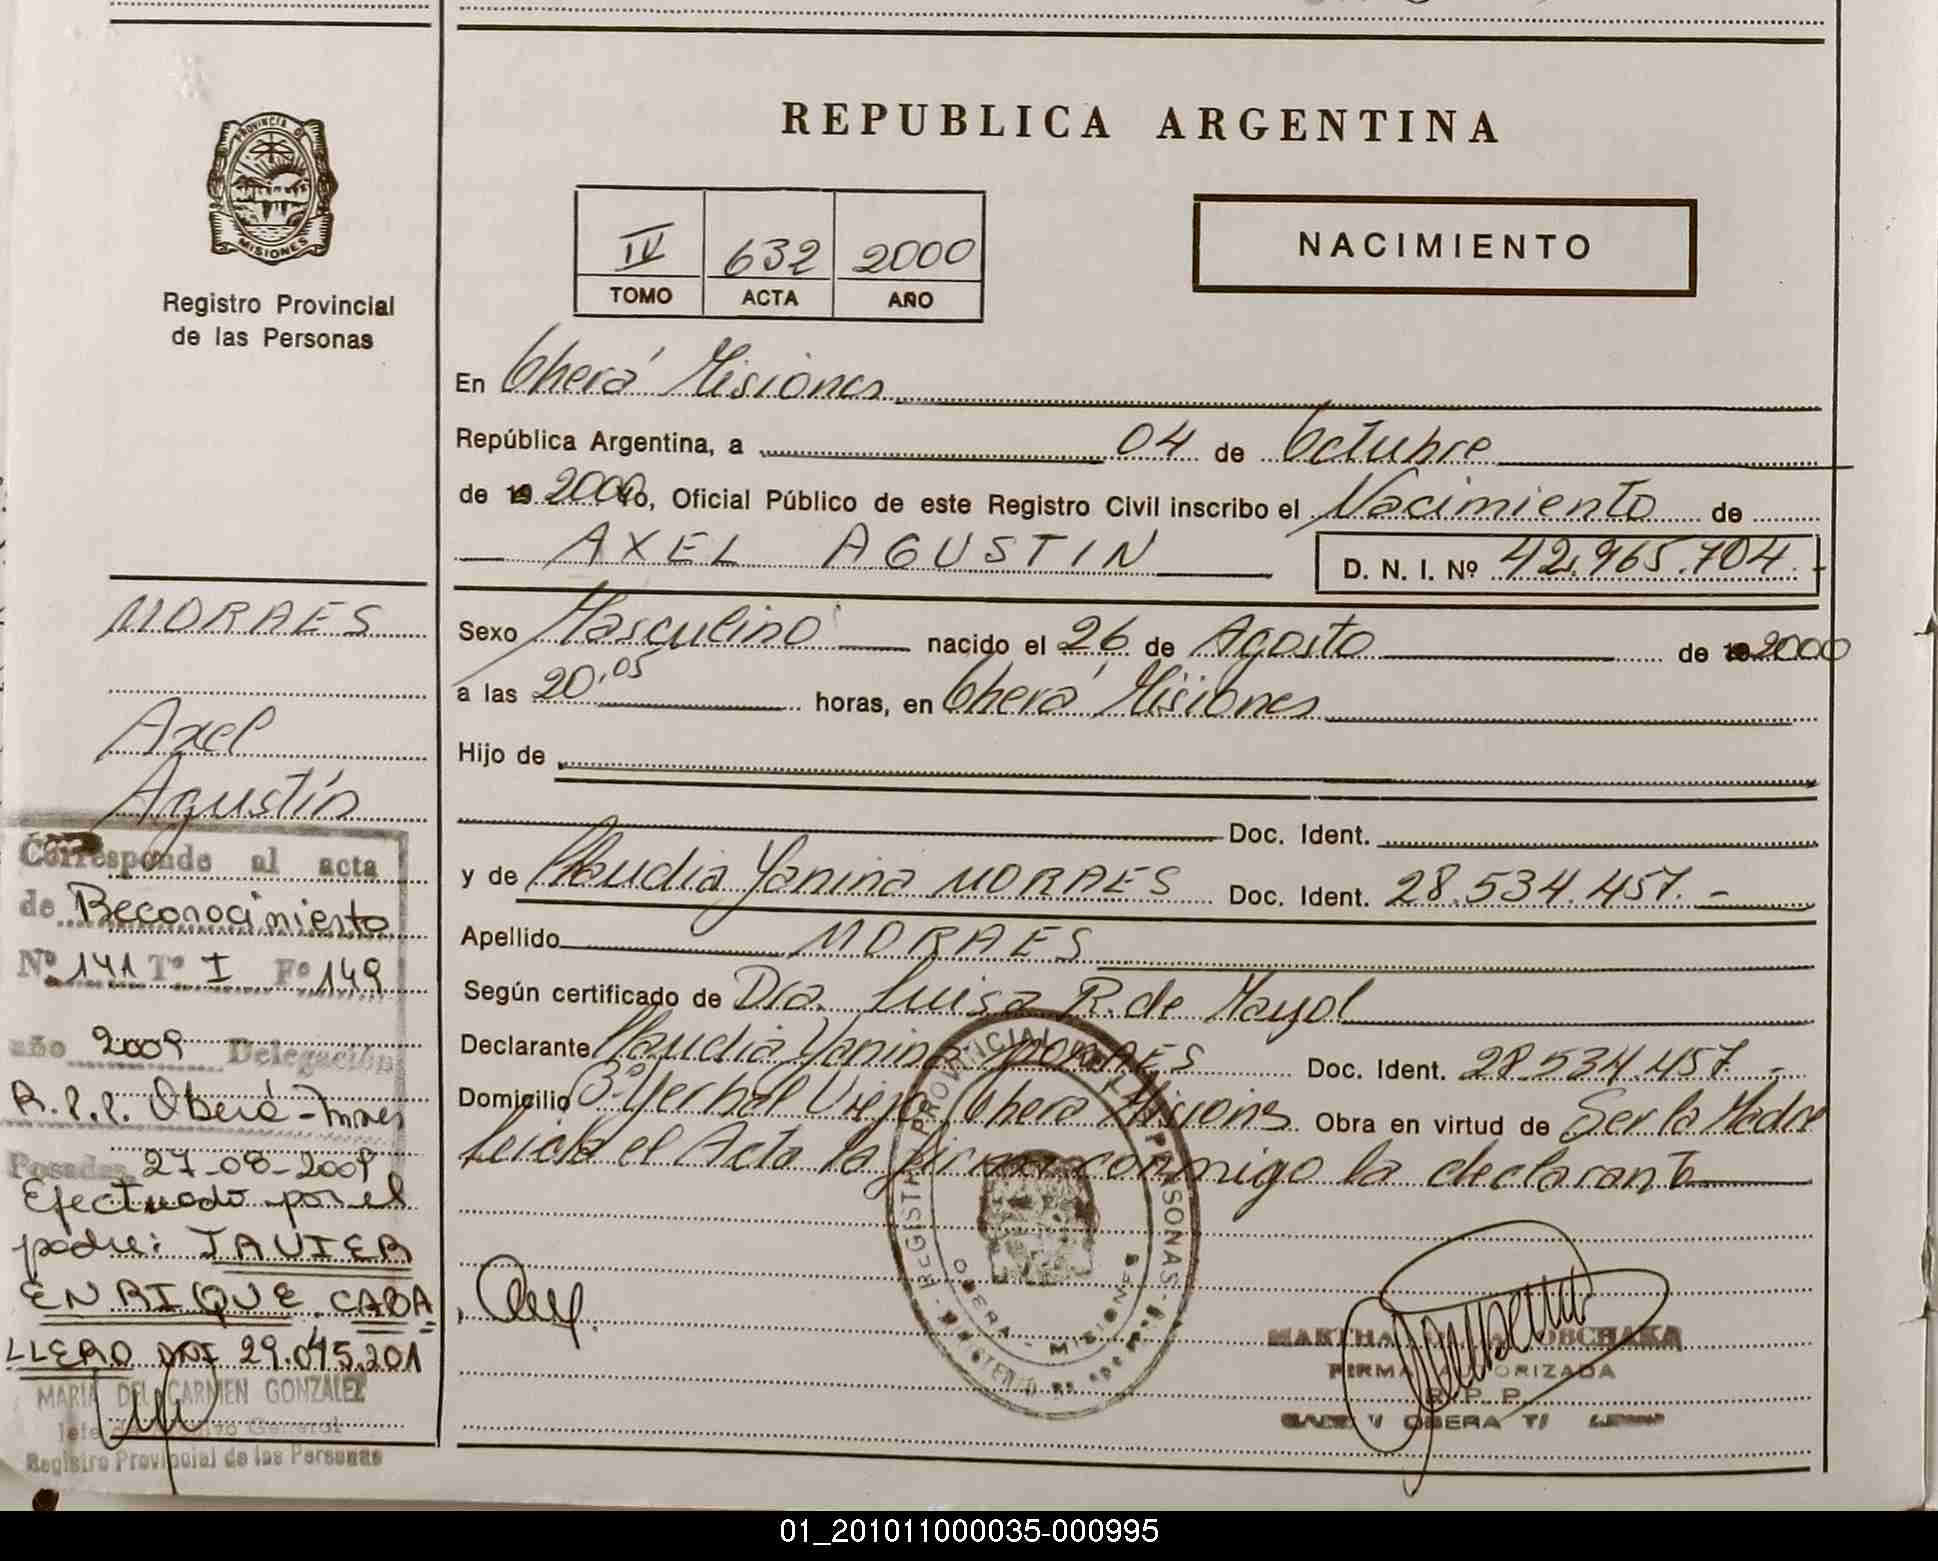 PROVINCIA DE
MISIONES
Registro Provincial
de las Personas
MORAES
Axel
Agustín
Corresponde al acta
de Reconocimiento
Nº 141 Tº I Fº 149
año 2009 Delegación
R.P.P. Oberá - Mnes
Posadas, 27-08-2009
Efectuado por el
padre: JAVIER
ENRIQUE CABA
LLERO DNI 29.045.201
MARIA DEL CARMEN GONZALEZ
Jefe General
Registro Provincial de las Personas
REPUBLICA ARGENTINA
IV 632 2000
TOMO ACTA AÑO
NACIMIENTO
En Oberá Misiones
República Argentina, a 04 de Octubre
de 19 2000 Yo, Oficial Público de este Registro Civil inscribo el Nacimiento de
AXEL AGUSTIN D. N. I. Nº 42.965.704.-
Sexo Masculino nacido el 26 de Agosto de 19 2000
a las 20:05 horas, en Oberá Misiones
Hijo de
Doc. Ident.
y de Claudia Yanina MORAES Doc. Ident. 28.534.457.-
Apellido MORAES
Según certificado de Dra. Luisa R. de Mayol
Declarante Claudia Yanina MORAES Doc. Ident. 28.534.457.-
Domicilio Bº Yerbal Viejo Oberá Misiones Obra en virtud de Ser la Madre
Leída el Acta la firma conmigo la declarante
REGISTRO PROVINCIAL DE LAS PERSONAS
OBERA - MISIONES
MARTHA
FIRMA AUTORIZADA
R. P. P.
OBERA
01_201011000035-000995